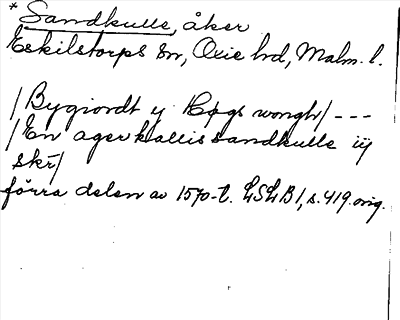 * Sandkulle, åker
Eskilstorps sn, Oxie hd, Malm. l.
/Bygiordt y Høgs wongh/ ---
/En ager kallis sandkulle iij
skr/
förra delen av 1570-t. LSLB1, s. 419 orig.